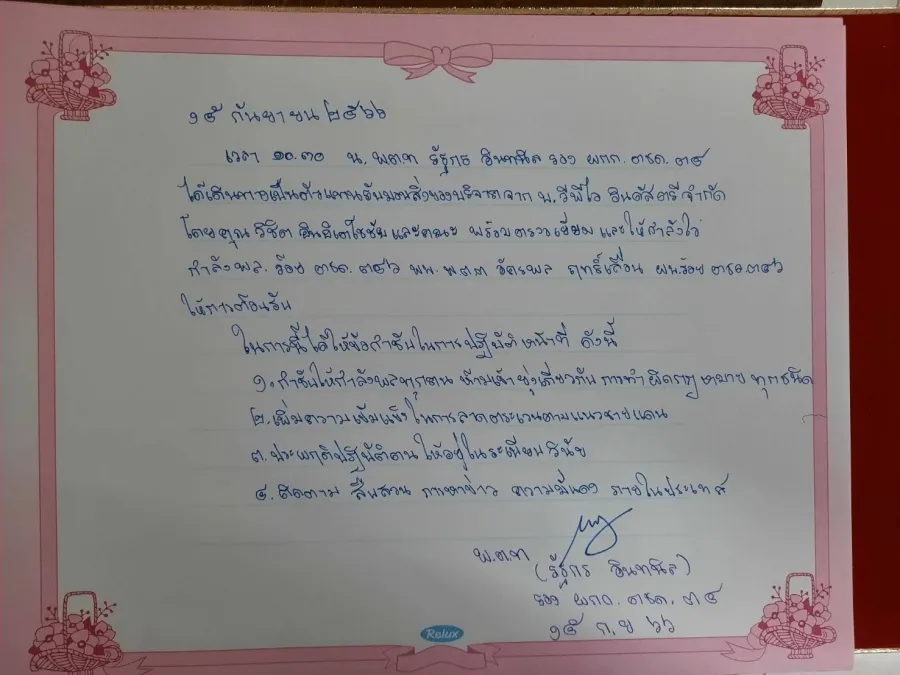 ๑๕ กันยายน ๒๕๖๖
เวลา ๑๐.๓๐ น. พ.ต.ท รัฐกร อินทนิล รอง ผกก. ตชด. ๓๔
ได้เดินทางเป็นตัวแทนรับมอบสิ่งของบริจาคจาก บ.วีพีไอ อินดัสตรีจำกัด
โดยคุณ วิชิต และคณะ พร้อมตรวจเยี่ยม และให้กำลังใจ
กำลังพล. ร้อย ตชด. ๓๔๖ พบ พ.ต.ต ฤทธิ์เลื่อน ผบ.ร้อย ตชด.๓๔๖
ให้การต้อนรับ
ในการนี้ได้ให้ข้อกำชับในการปฏิบัติหน้าที่ ดังนี้
๑. กำชับให้กำลังพลทุกคน ห้ามเข้ายุ่งเกี่ยวกับ การทำผิดกฎหมาย ทุกชนิด
๒. เพิ่มความเข้มแข็งในการลาดตระเวนตามแนวชายแดน
๓. ประพฤติปฏิบัติตน ให้อยู่ในระเบียบวินัย
๔. ติดตาม สืบสวน การหาข่าว ความมั่นคง ภายในประเทศ
พ.ต.ท
(รัฐกร อินทนิล)
รอง ผกก. ตชด. ๓๔
๑๕ ก.ย ๖๖
Relux